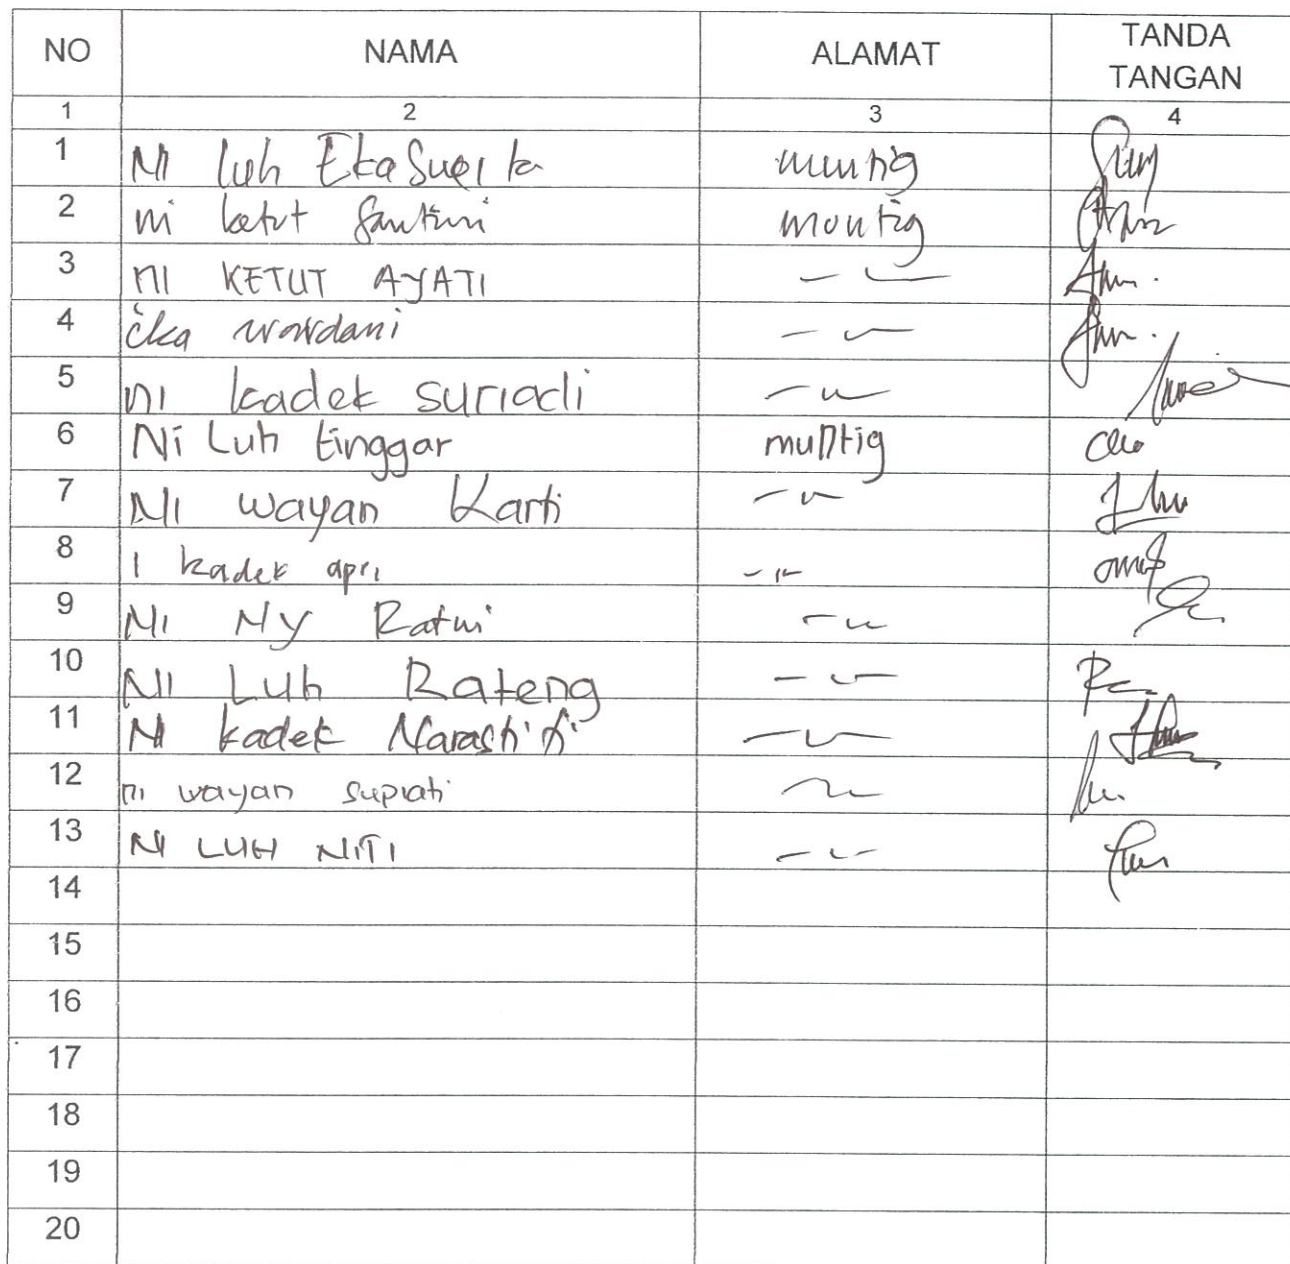 NO NAMA ALAMAT TANDA TANGAN
1 2 3 4
1 Ni luh Eka muntig
2 ni ketut Santini muntig
3 ni KETUT AYATI
4 eka wardani
5 ni kadek suriadi
6 Ni Luh tinggar muntig
7 Ni wayan Karti
8 I kadek apri
9 Ni Ny Ratni
10 Ni Luh Rateng
11 Ni kadek
12 ni wayan supiati
13 Ni LUH NITI
14
15
16
17
18
19
20